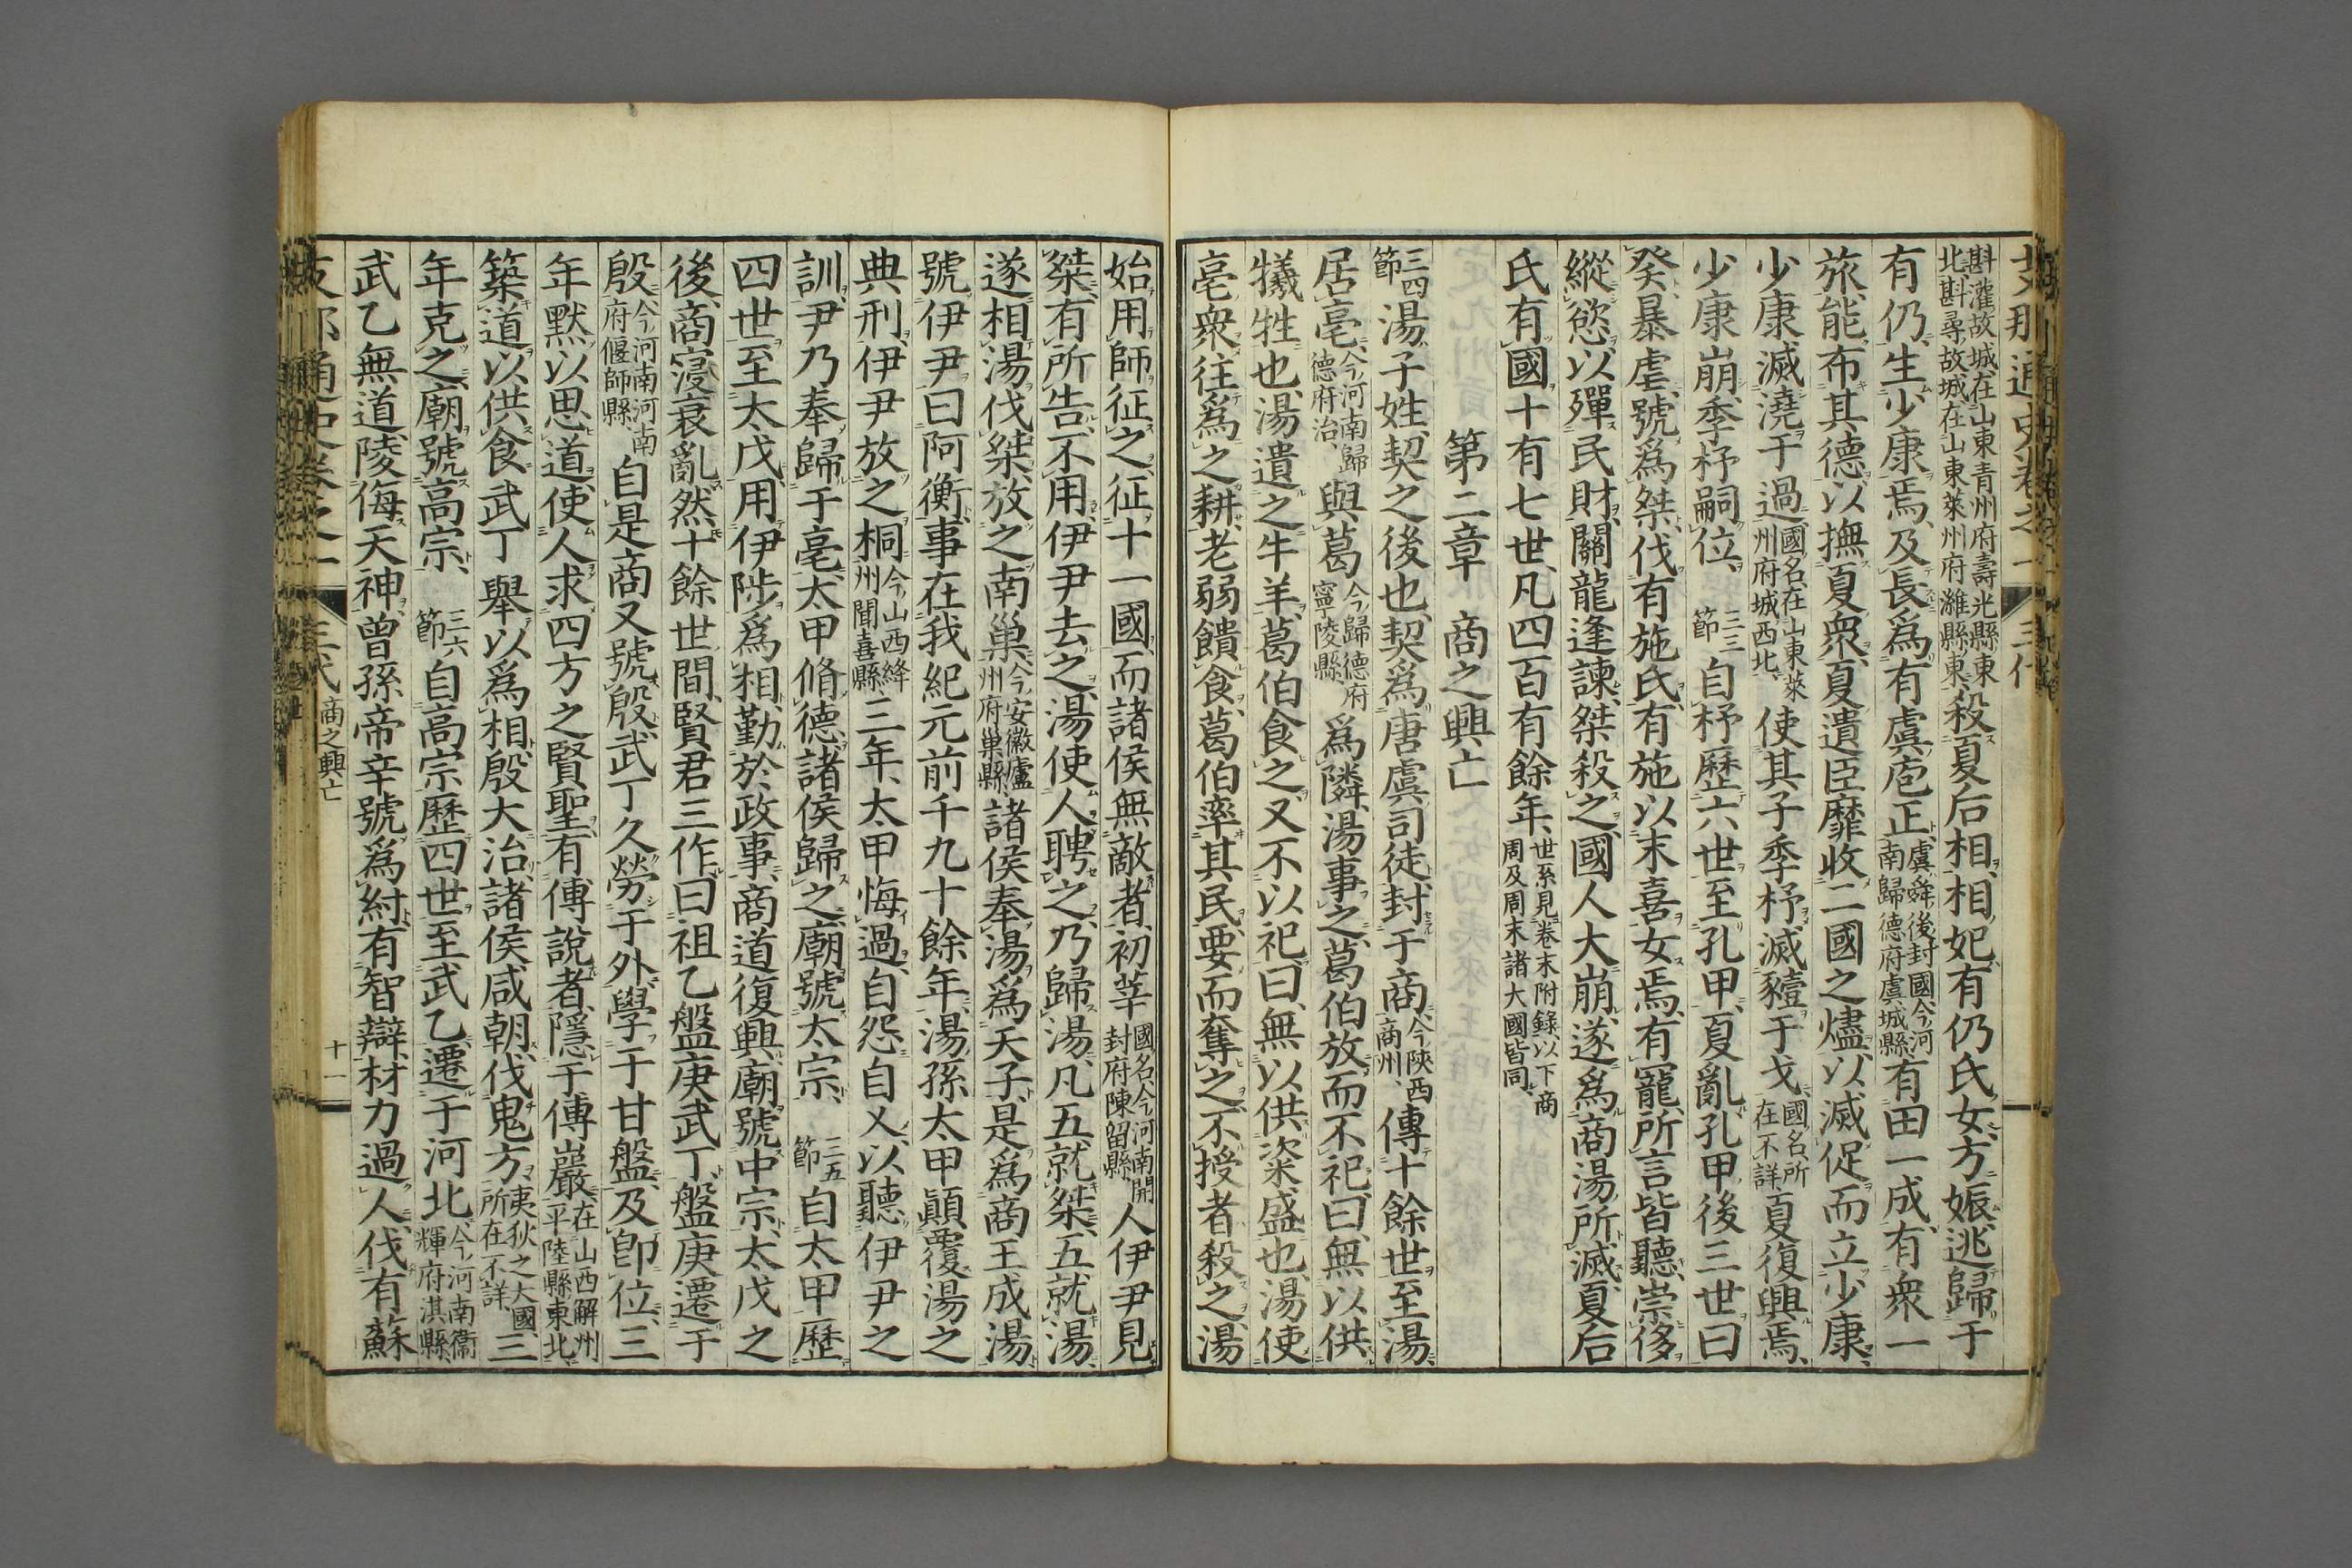 斟灌故城在山東青州府壽光縣東
北、斟尋故城在山東萊州府濰縣東、殺夏后相、相妃有仍氏女、方娠、逃歸于
有仍、生少康焉、及長、爲有虞庖正、虞、舜後封國、今河
南歸德府虞城縣、有田一成、有衆一
旅、能布其德、以撫夏衆、夏遺臣靡收二國之燼、以滅浞而立少康、
少康滅澆于過、國名、在山東萊
州府城西北、使其子季杼滅豷于戈、國名、所
在不詳、夏復興焉、
少康崩、季杼嗣位、三三
節 自杼歷六世至孔甲、夏亂、孔甲後三世曰
癸、暴虐、號爲桀、伐有施氏、有施以末喜女焉、有寵、所言皆聽、崇侈
縱慾、以殫民財、關龍逢諫、桀殺之、國人大崩、遂爲商湯所滅、夏后
氏有國、十有七世、凡四百有餘年、世系見卷末附錄、以下商
周及周末諸大國皆同、
第二章 商之興亡
三四
節 湯、子姓、契之後也、契爲唐虞司徒、封于商、今陝西
商州、傳十餘世至湯、
居亳、今河南歸
德府治、與葛 今歸德府
寧陵縣、爲隣、湯事之、葛伯放而不祀、曰、無以供
犧牲也、湯遺之牛羊、葛伯食之、又不以祀、曰、無以供粢盛也、湯使
亳衆往爲之耕、老弱饋食、葛伯率其民、要而奪之、不授者殺之、湯
始用師征之、征十一國、而諸侯無敵者、初莘 國名、今河南開
封府陳留縣、人伊尹見
桀、有所告、不用、伊尹去之、湯使人聘之、乃歸湯、凡五就桀、五就湯、
遂相湯伐桀、放之南巢、今安徽廬
州府巢縣、諸侯奉湯爲天子、是爲商王成湯、
號伊尹曰阿衡、事在我紀元前千九十餘年、湯孫太甲顚覆湯之
典刑、伊尹放之桐、今山西絳
州聞喜縣、三年、太甲悔過、自怨自乂、以聽伊尹之
訓、尹乃奉歸于亳、太甲脩德、諸侯歸之、廟號太宗、三五
節 自太甲歷
四世至太戊、用伊陟爲相、勤於政事、商道復興、廟號中宗、太戊之
後、商寖衰亂、然十餘世間、賢君三作、曰祖乙盤庚武丁、盤庚遷于
殷 今河南河南
府偃師縣、自是商又號殷、武丁久勞于外、學于甘盤、及卽位、三
年默以思道、使人求四方之賢聖、有傅說者、隱于傅巖、在山西解州
平陸縣東北、
築道以供食、武丁舉以爲相、殷大治、諸侯咸朝、伐鬼方、夷狄之大國、
所在不詳、三
年克之、廟號高宗、三六
節 自高宗歷四世至武乙、遷于河北、今河南衞
輝府淇縣、
武乙無道、陵侮天神、曾孫帝辛號爲紂、有智辯、材力過人、伐有蘇
支那通史卷之一 三代 商之興亡 十一